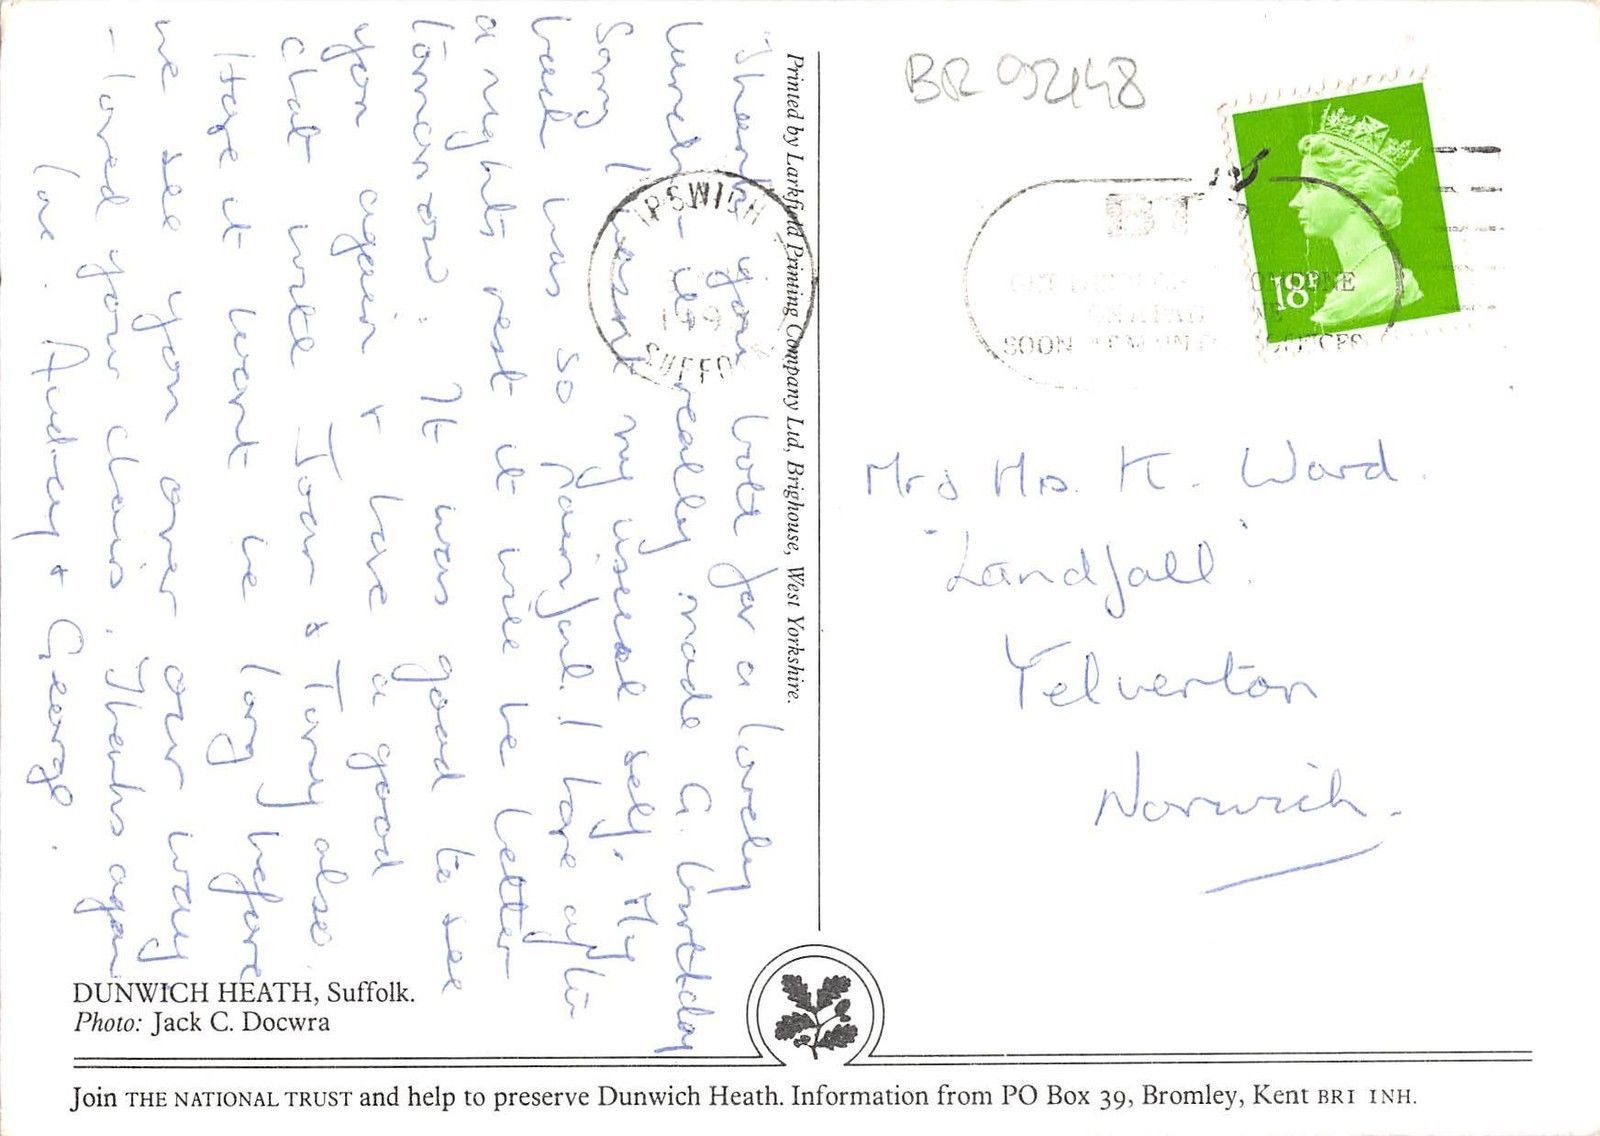 Thank you both for a lovely
lunch it really made G. birthday
Sorry I wasnt my usual self. My
back was so painful. I hope after
a nights rest it will be better
tomorrow. It was good to see
you again & have a good
chat with Joan & Tony also.
Hope it wont be long before
we see you over our way
- loved your chairs. Thanks again
love. Audrey & George.
Printed by Larkfield Printing Company Ltd, Brighouse, West Yorkshire.
BR 92148
18P
IPSWICH
SUFFO
BT
SOON
Mr & Mrs. K. Ward.
"Landfall".
Yelverton
Norwich.
DUNWICH HEATH, Suffolk.
Photo: Jack C. Docwra
Join THE NATIONAL TRUST and help to preserve Dunwich Heath. Information from PO Box 39, Bromley, Kent BR1 1NH.